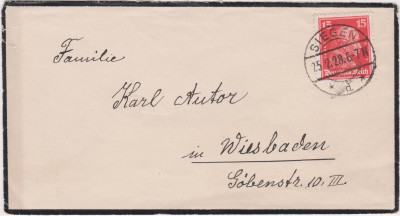 15 15
Deutsches Reich
SIEGEN
25.7.28.6-7N
* d *
Familie
Karl Autor
in Wiesbaden
Göbenstr. 10. III.